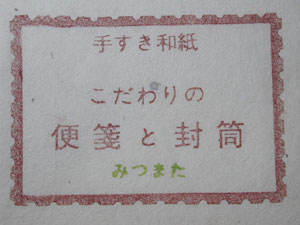 手すき和紙
こだわりの
便箋と封筒
みつまた